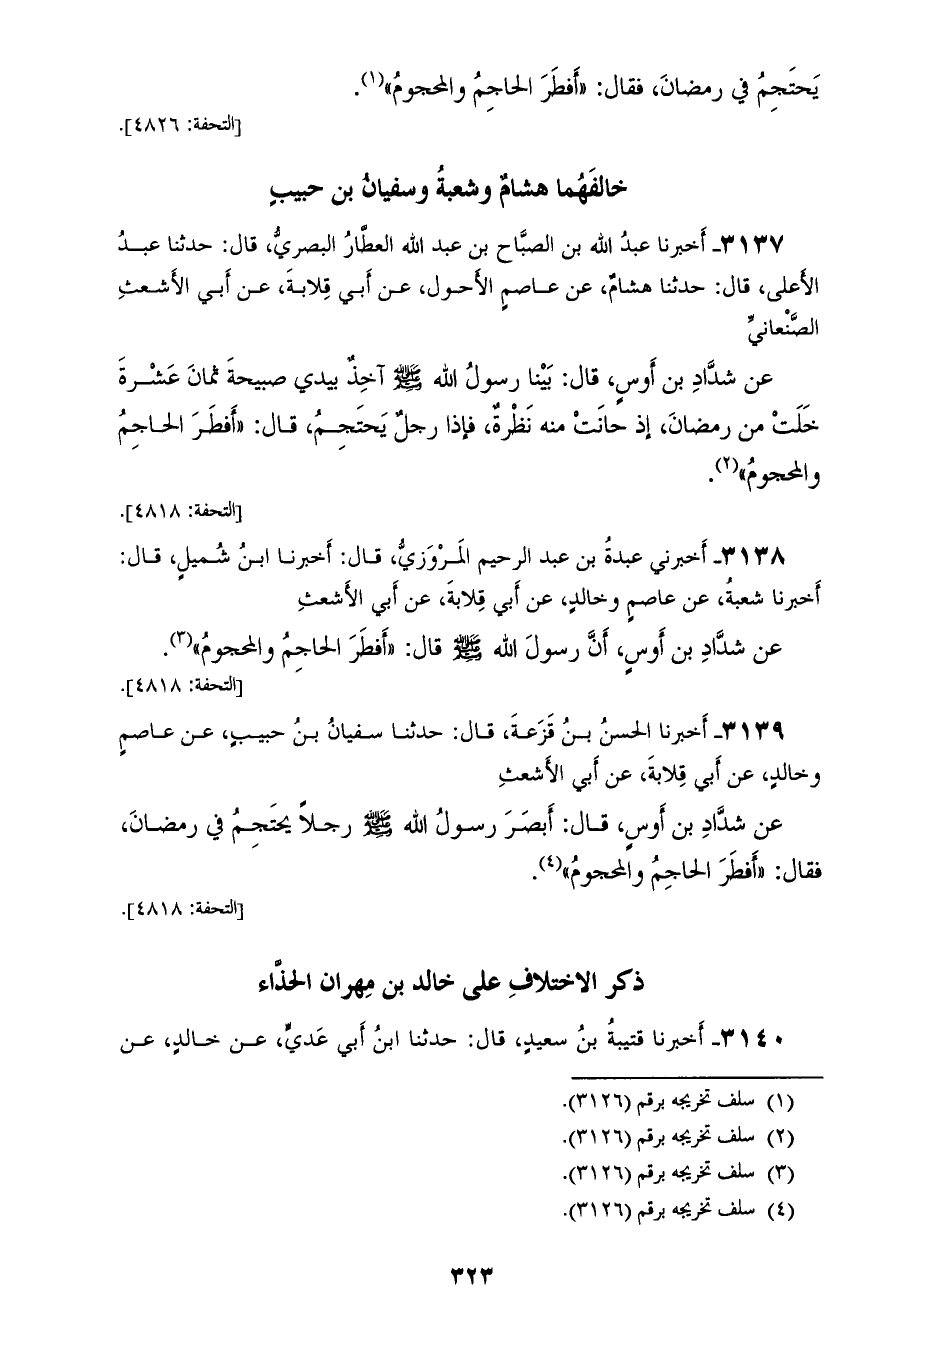 يَحتَجِمُ في رمضانَ، فقال: «أَفطَرَ الحاجِمُ والمحجومُ»(١).
[التحفة: ٤٨٢٦].
خالفَهُما هشامٌ وشعبةُ وسفيانُ بن حبيبٍ
٣١٣٧ـ أَخبرنا عبدُ الله بن الصبَّاح بن عبد الله العطَّارُ البصريُّ، قال: حدثنا عبدُ
الأعلى، قال: حدثنا هشامٌ، عن عاصمٍ الأحول، عن أَبي قِلابةَ، عن أَبي الأشعثِ
الصَّنْعانيِّ
عن شدَّادِ بن أَوسٍ، قال: بَيْنا رسولُ الله ﷺ آخِذٌ بيدي صبيحةَ ثمانَ عَشْرةَ
خَلَتْ من رمضانَ، إذ حانَتْ منه نَظْرةٌ، فإذا رجلٌ يَحتَجِمُ، قال: «أَفطَرَ الحاجِمُ
والمحجومُ»(٢).
[التحفة: ٤٨١٨].
٣١٣٨ـ أَخبرني عبدةُ بن عبد الرحيم المَرْوَزيُّ، قال: أَخبرنا ابنُ شُميلٍ، قال:
أَخبرنا شعبةُ، عن عاصمٍ وخالدٍ، عن أَبي قِلابةَ، عن أَبي الأشعثِ
عن شدَّادِ بن أَوسٍ، أَنَّ رسولَ الله ﷺ قال: «أَفطَرَ الحاجِمُ والمحجومُ»(٣).
[التحفة: ٤٨١٨].
٣١٣٩ـ أَخبرنا الحسنُ بنُ قَزَعةَ، قال: حدثنا سفيانُ بنُ حبيبٍ، عن عاصمٍ
وخالدٍ، عن أَبي قِلابةَ، عن أَبي الأَشعثِ
عن شدَّادِ بن أَوسٍ، قال: أَبصَرَ رسولُ الله ﷺ رجلاً يحتَجِمُ في رمضانَ،
فقال: «أَفطَرَ الحاجِمُ والمحجومُ»(٤).
[التحفة: ٤٨١٨].
ذكر الاختلافِ على خالد بن مِهران الحذَّاء
٣١٤٠ـ أَخبرنا قتيبةُ بنُ سعيدٍ، قال: حدثنا ابنُ أَبي عَديٍّ، عن خالدٍ، عن
(١) سلف تخريجه برقم (٣١٢٦).
(٢) سلف تخريجه برقم (٣١٢٦).
(٣) سلف تخريجه برقم (٣١٢٦).
(٤) سلف تخريجه برقم (٣١٢٦).
٣٢٣